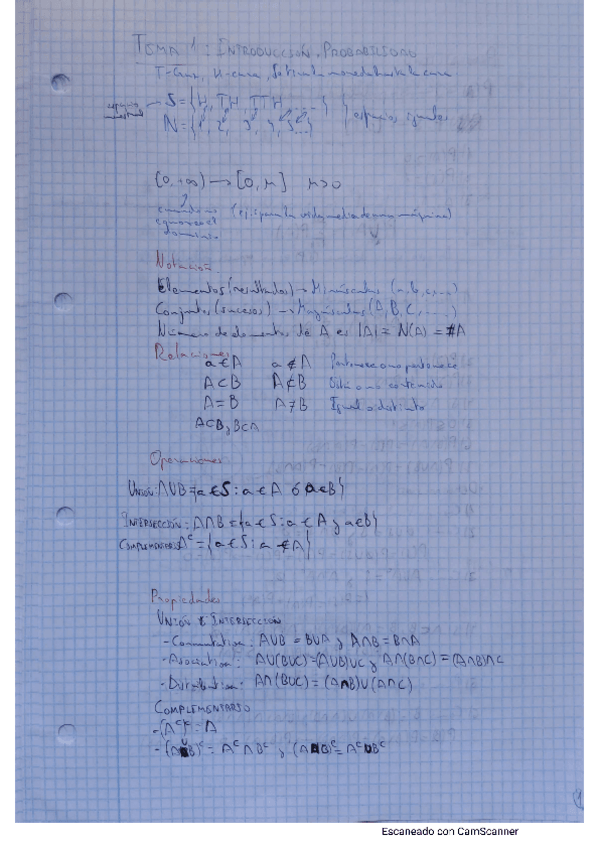 TEMA 1: INTRODUCCIÓN. PROBABILIDAD
T-cruz, H-cara,
espacio muestral → S = {H, TH, TTH, ...} } espacios iguales
N = {1, 2, 3, 4, 5...}
(0, +∞) → [0, M] M>0
cuando no (ej: para la vida media de una máquina)
dominio
Notación
Elementos (resultados) → Minúsculas (a, b, c, ...)
Conjuntos (sucesos) → Mayúsculas (A, B, C, ...)
Número de elementos de A es |A| = N(A) = #A
Relaciones
a ∈ A a ∉ A Pertenece o no pertenece
A ⊂ B A ⊄ B Está o no contenido
A = B A ≠ B Igual o distinto
A⊂B y B⊂A
Operaciones
UNIÓN: A∪B = {a ∈ S : a ∈ A ó a∈B}
INTERSECCIÓN: A∩B = {a ∈ S : a ∈ A y a∈B}
COMPLEMENTARIO A^c = {a ∈ S : a ∉ A}
Propiedades
UNIÓN E INTERSECCIÓN
- Conmutativa: A∪B = B∪A y A∩B = B∩A
- Asociativa: A∪(B∪C)=(A∪B)∪C y A∩(B∩C) = (A∩B)∩C
- Distributiva: A∩(B∪C) = (A∩B)∪(A∩C)
COMPLEMENTARIO
- (A^c)^c = A
- (A∪B)^c = A^c ∩ B^c y (A∩B)^c = A^c ∪ B^c
1
Escaneado con CamScanner